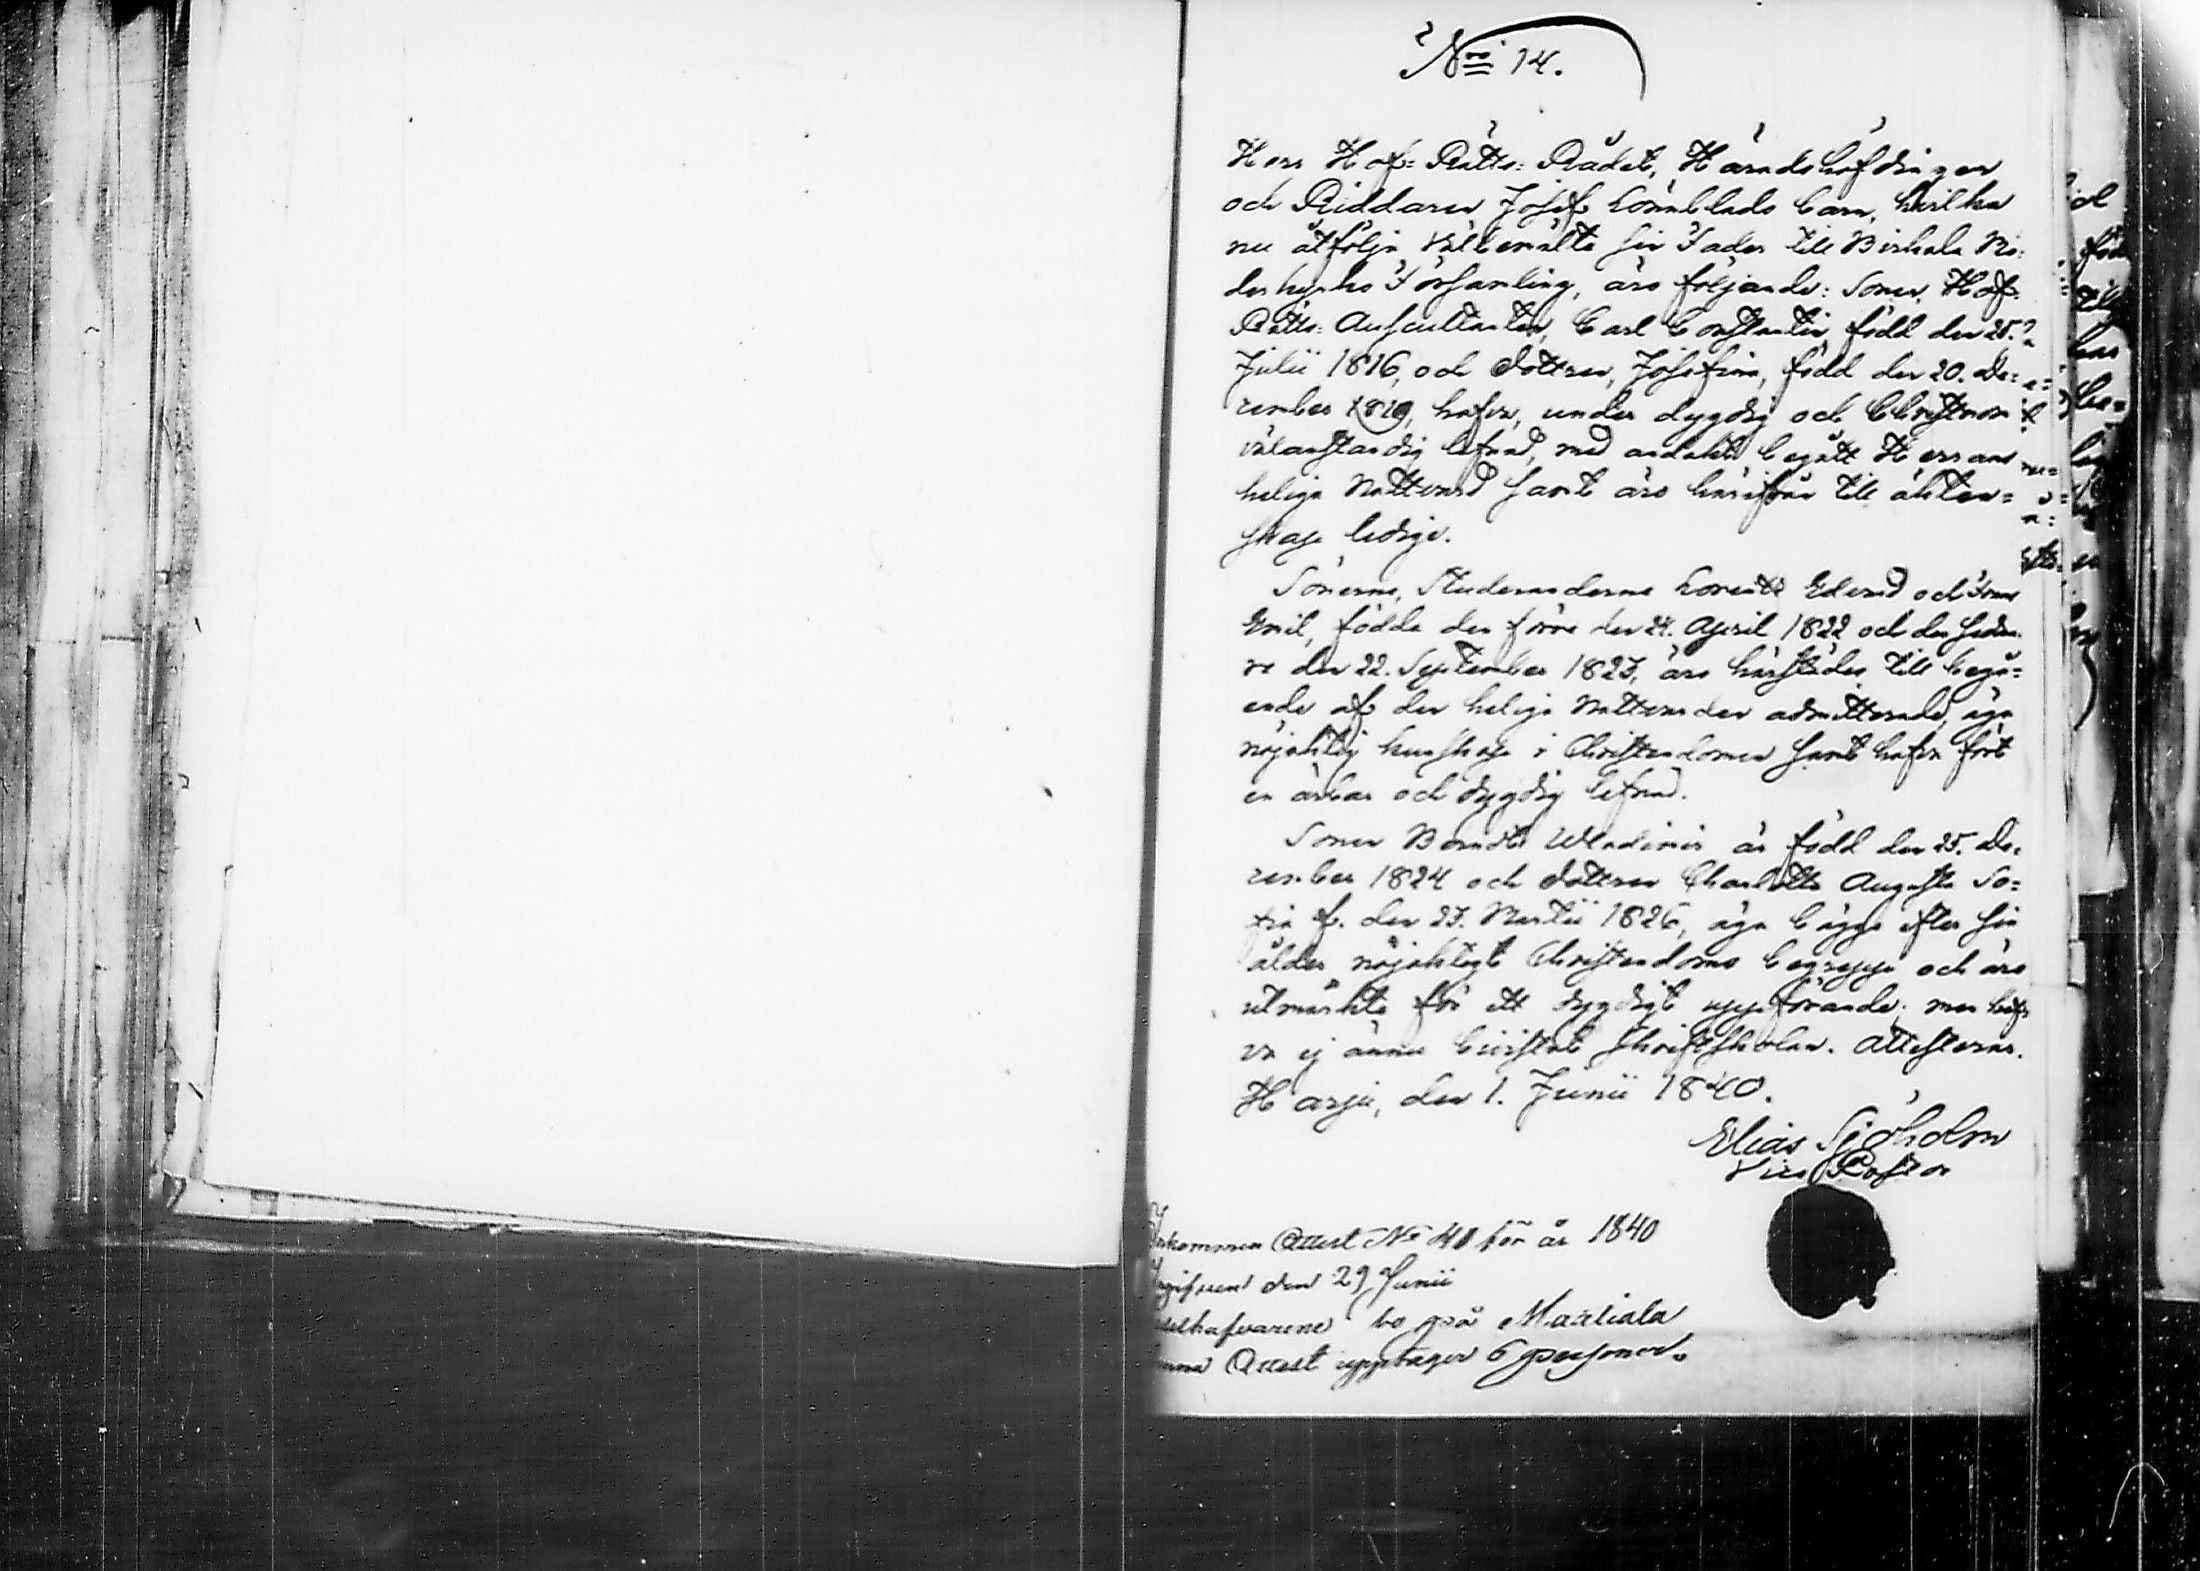 N:roi 14.
Herr Hof-Rätts-Rådet, Häradshöfdingen
och Riddaren Josef Lönnblads barn, hvilka
nu åtfölja välbemälte sin Fader till Birkala Mo-
derkyrko Församling, äro följande: Sonen, Hof-
Rätts-Auscultanten, Carl Constantin, född den 25.
Julii 1816, och dottren, Josefina, född den 20. De-
cember 1819, hafva, under dygdig och Christnom
välanständig lefnad, med andakt begått Herrans
heliga Nattvard samt äro härifrån till äkten=
skap ledige.
Sönerne, Studeranderne Edvard och Frans
Emil, födde den förre den 24. April 1822 och den sedna-
re den 22. September 1823, äro härstädes till begå=
ende af den heliga Nattvarden admitterade, äga
nöjaktig kunskap i Christendomen samt hafva fört
en ärbar och dygdig lefnad.
Sonen Berndt Wladimir är född den 25. De-
cember 1824 och dottren Charlotta Augusta So=
fia f. den 27. Martii 1826, äga bägge efter sin
ålder nöjaktigt Christendoms begrepp och äro
utmärkte för ett dygdigt uppförande; men haf-
va ej ännu bivistat skriftskolan. Attesterar.
Harju, den 1. Junii 1840.
Elias Sjöholm
Vice Pastor
Inkommen Attest No 40 för år 1840
Ingifven den 29 Junii
bo på Martiala
Attest upptager 6 personer.